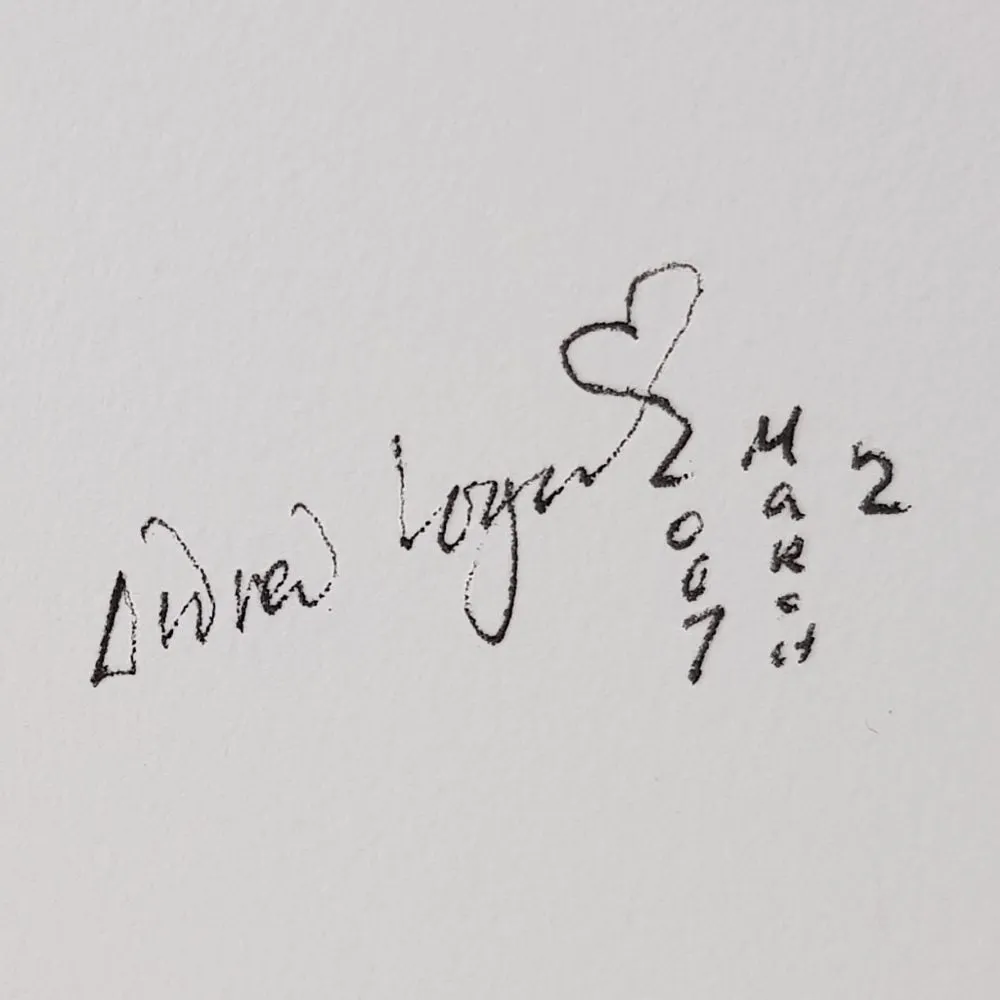 Andrew Logan
2007
MaRcH
2